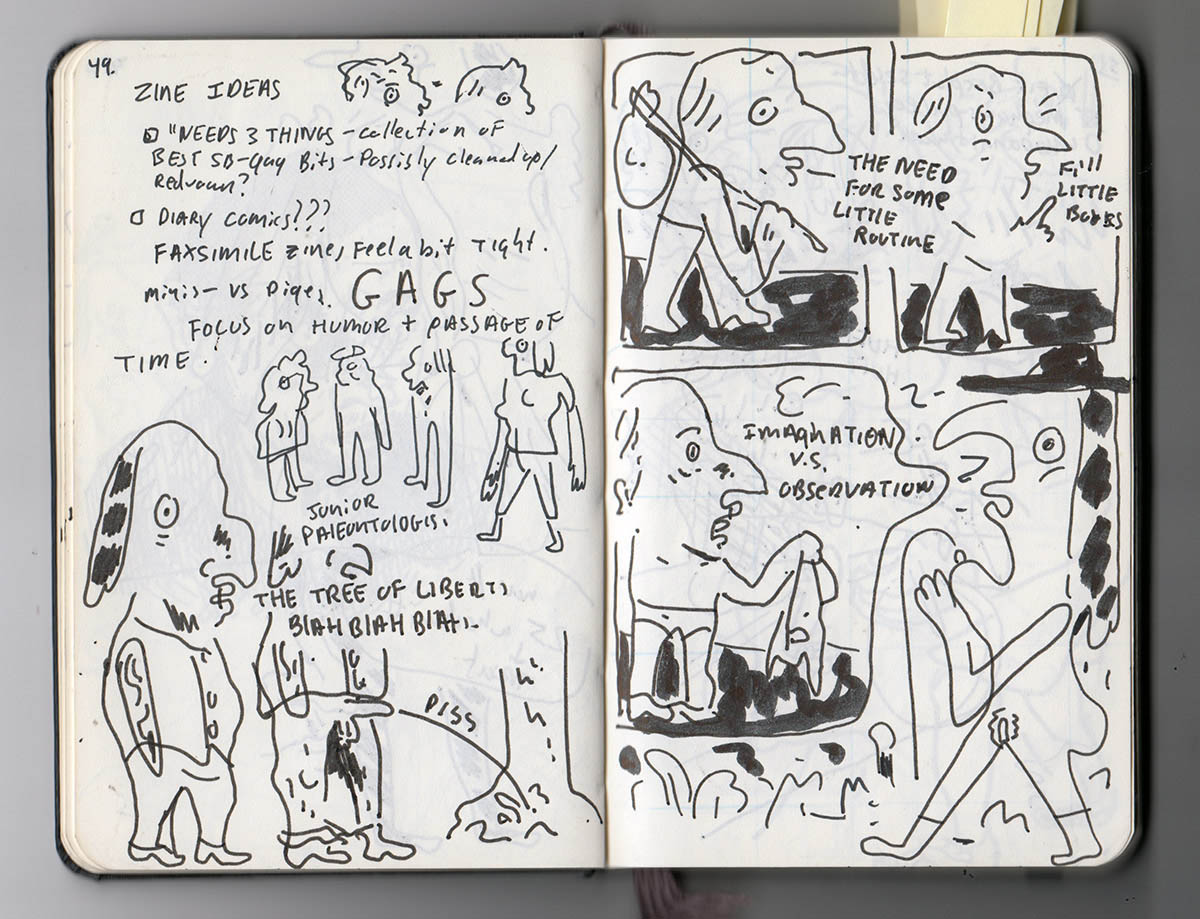 49.
ZINE IDEAS
"NEEDS 3 THINGS - collection of
BEST SB-gag Bits - Possibly cleaned up/
Redrawn?
DIARY comics???
FAXSIMILE zines Feel a bit TIGHT.
minis - VS
GAGS
FOCUS on HUMOR + PASSAGE OF
TIME.
JUNIOR
PALEONTOLOGIS.
THE TREE OF LIBERTY
BLAH BLAH BLAH.
PISS
THE NEED
FOR SOME
LITTLE
ROUTINE
Fill
LITTLE
BOOKS
IMAGINATION
V.S.
OBSERVATION